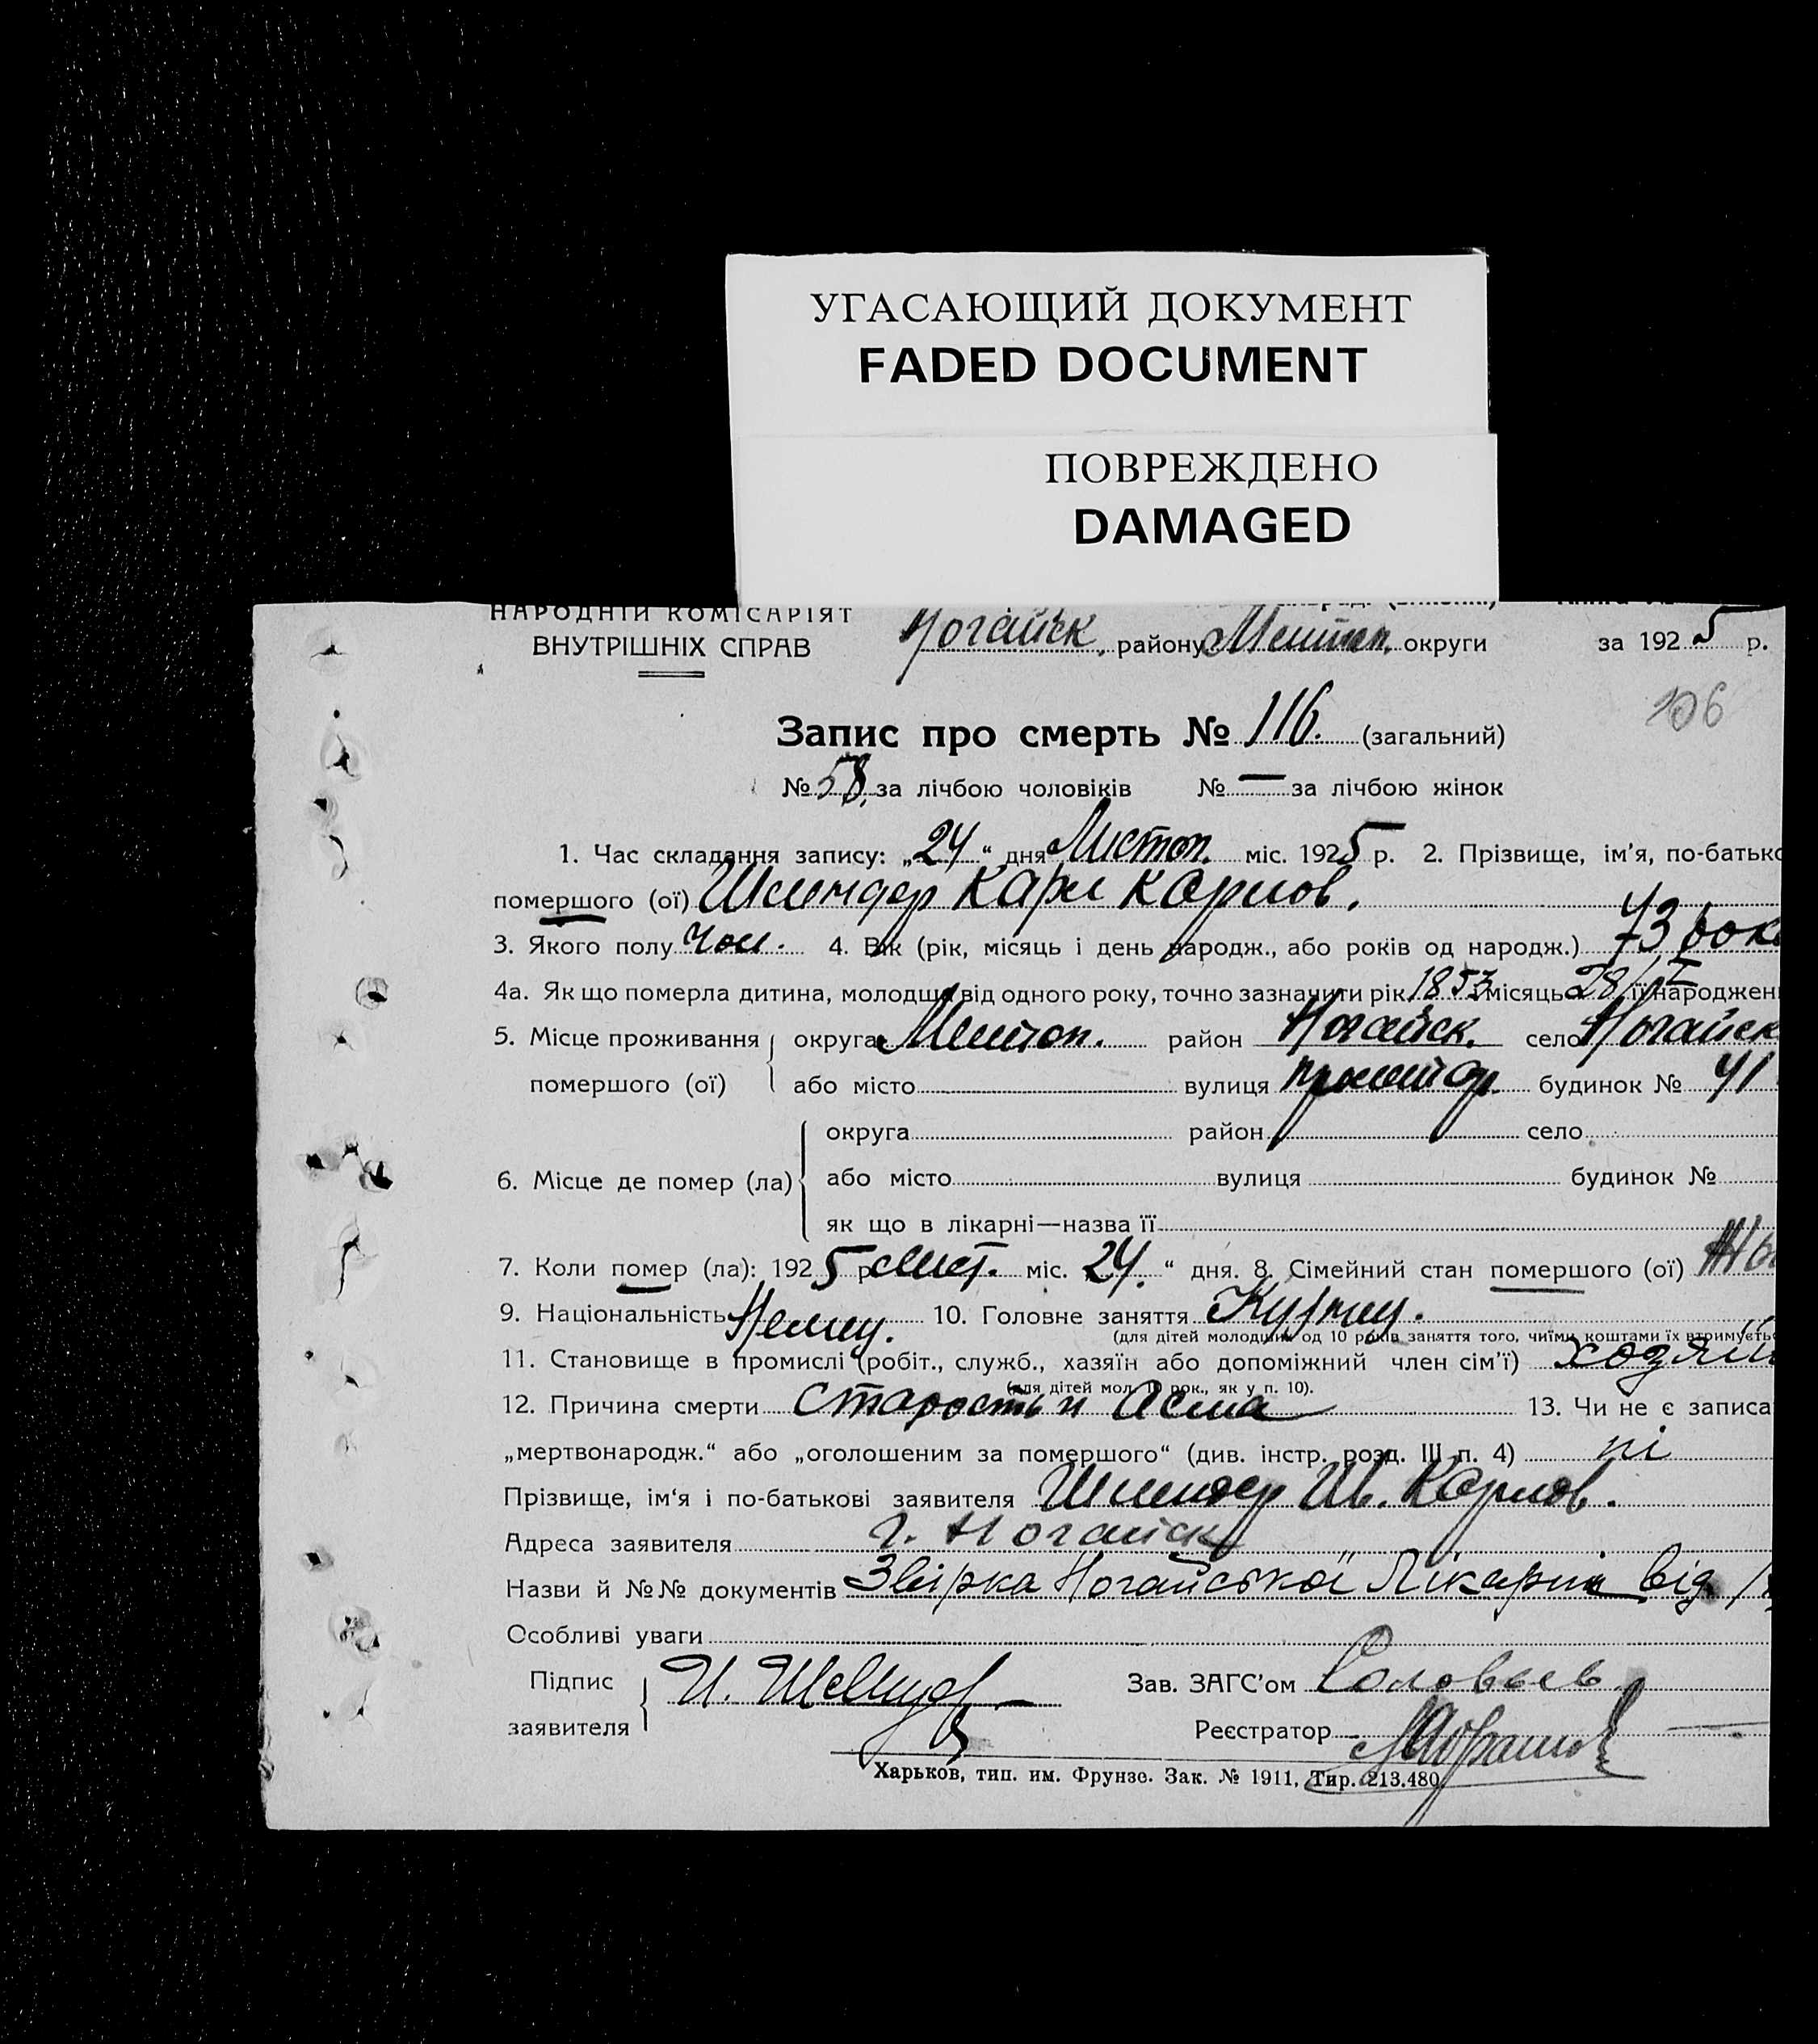 УГАСАЮЩИЙ ДОКУМЕНТ
FADED DOCUMENT
ПОВРЕЖДЕНО
DAMAGED
НАРОДНІЙ КОМІСАРІЯТ
ВНУТРІШНІХ СПРАВ
Ногайск. району Мелітоп. округи за 1925 р.
106
Запис про смерть № 116. (загальний)
№ 58, за лічбою чоловіків № — за лічбою жінок
1. Час складання запису: „24“ дня Листоп. міс. 1925 р. 2. Прізвище, ім’я, по-батько
помершого (ої) Шлиндер Карл Карлов.
3. Якого полу Чол. 4. Вік (рік, місяць і день народж., або років од народж.) 73 рок
4а. Як що померла дитина, молодша від одного року, точно зазначити рік 1853 місяць 28/ її народжен
5. Місце проживання округа Мелітоп. район Ногайск. село Ногайск
помершого (ої) або місто вулиця будинок № 41
округа район село
6. Місце де помер (ла) або місто вулиця будинок №
як що в лікарні—назва її
7. Коли помер (ла): 1925 р. лист. міс. 24. “ дня. 8. Сімейний стан помершого (ої)
9. Національність Немец. 10. Головне заняття Кузнец.
(для дітей молодших од 10 років заняття того, чиїми коштами їх втримуєть
11. Становище в промислі (робіт., служб., хазяїн або допоміжний член сім’ї) хозяін
(для дітей мол. 10 рок., як у п. 10).
12. Причина смерти Старость и Асма 13. Чи не є записа
„мертвонародж.“ або „оголошеним за помершого“ (див. інстр. розд. III п. 4) ні
Прізвище, ім‘я і по-батькові заявителя Шлиндер Ив. Карлов.
Адреса заявителя г. Ногайск
Назви й №№ документів Звірка Ногайської Лікарні від
Особливі уваги
Підпис
заявителя И. Шлиндер
Зав. ЗАГС’ом Соловьев
Реєстратор
Харьков, тип. им. Фрунзе. Зак. № 1911, Тир. 213.480.